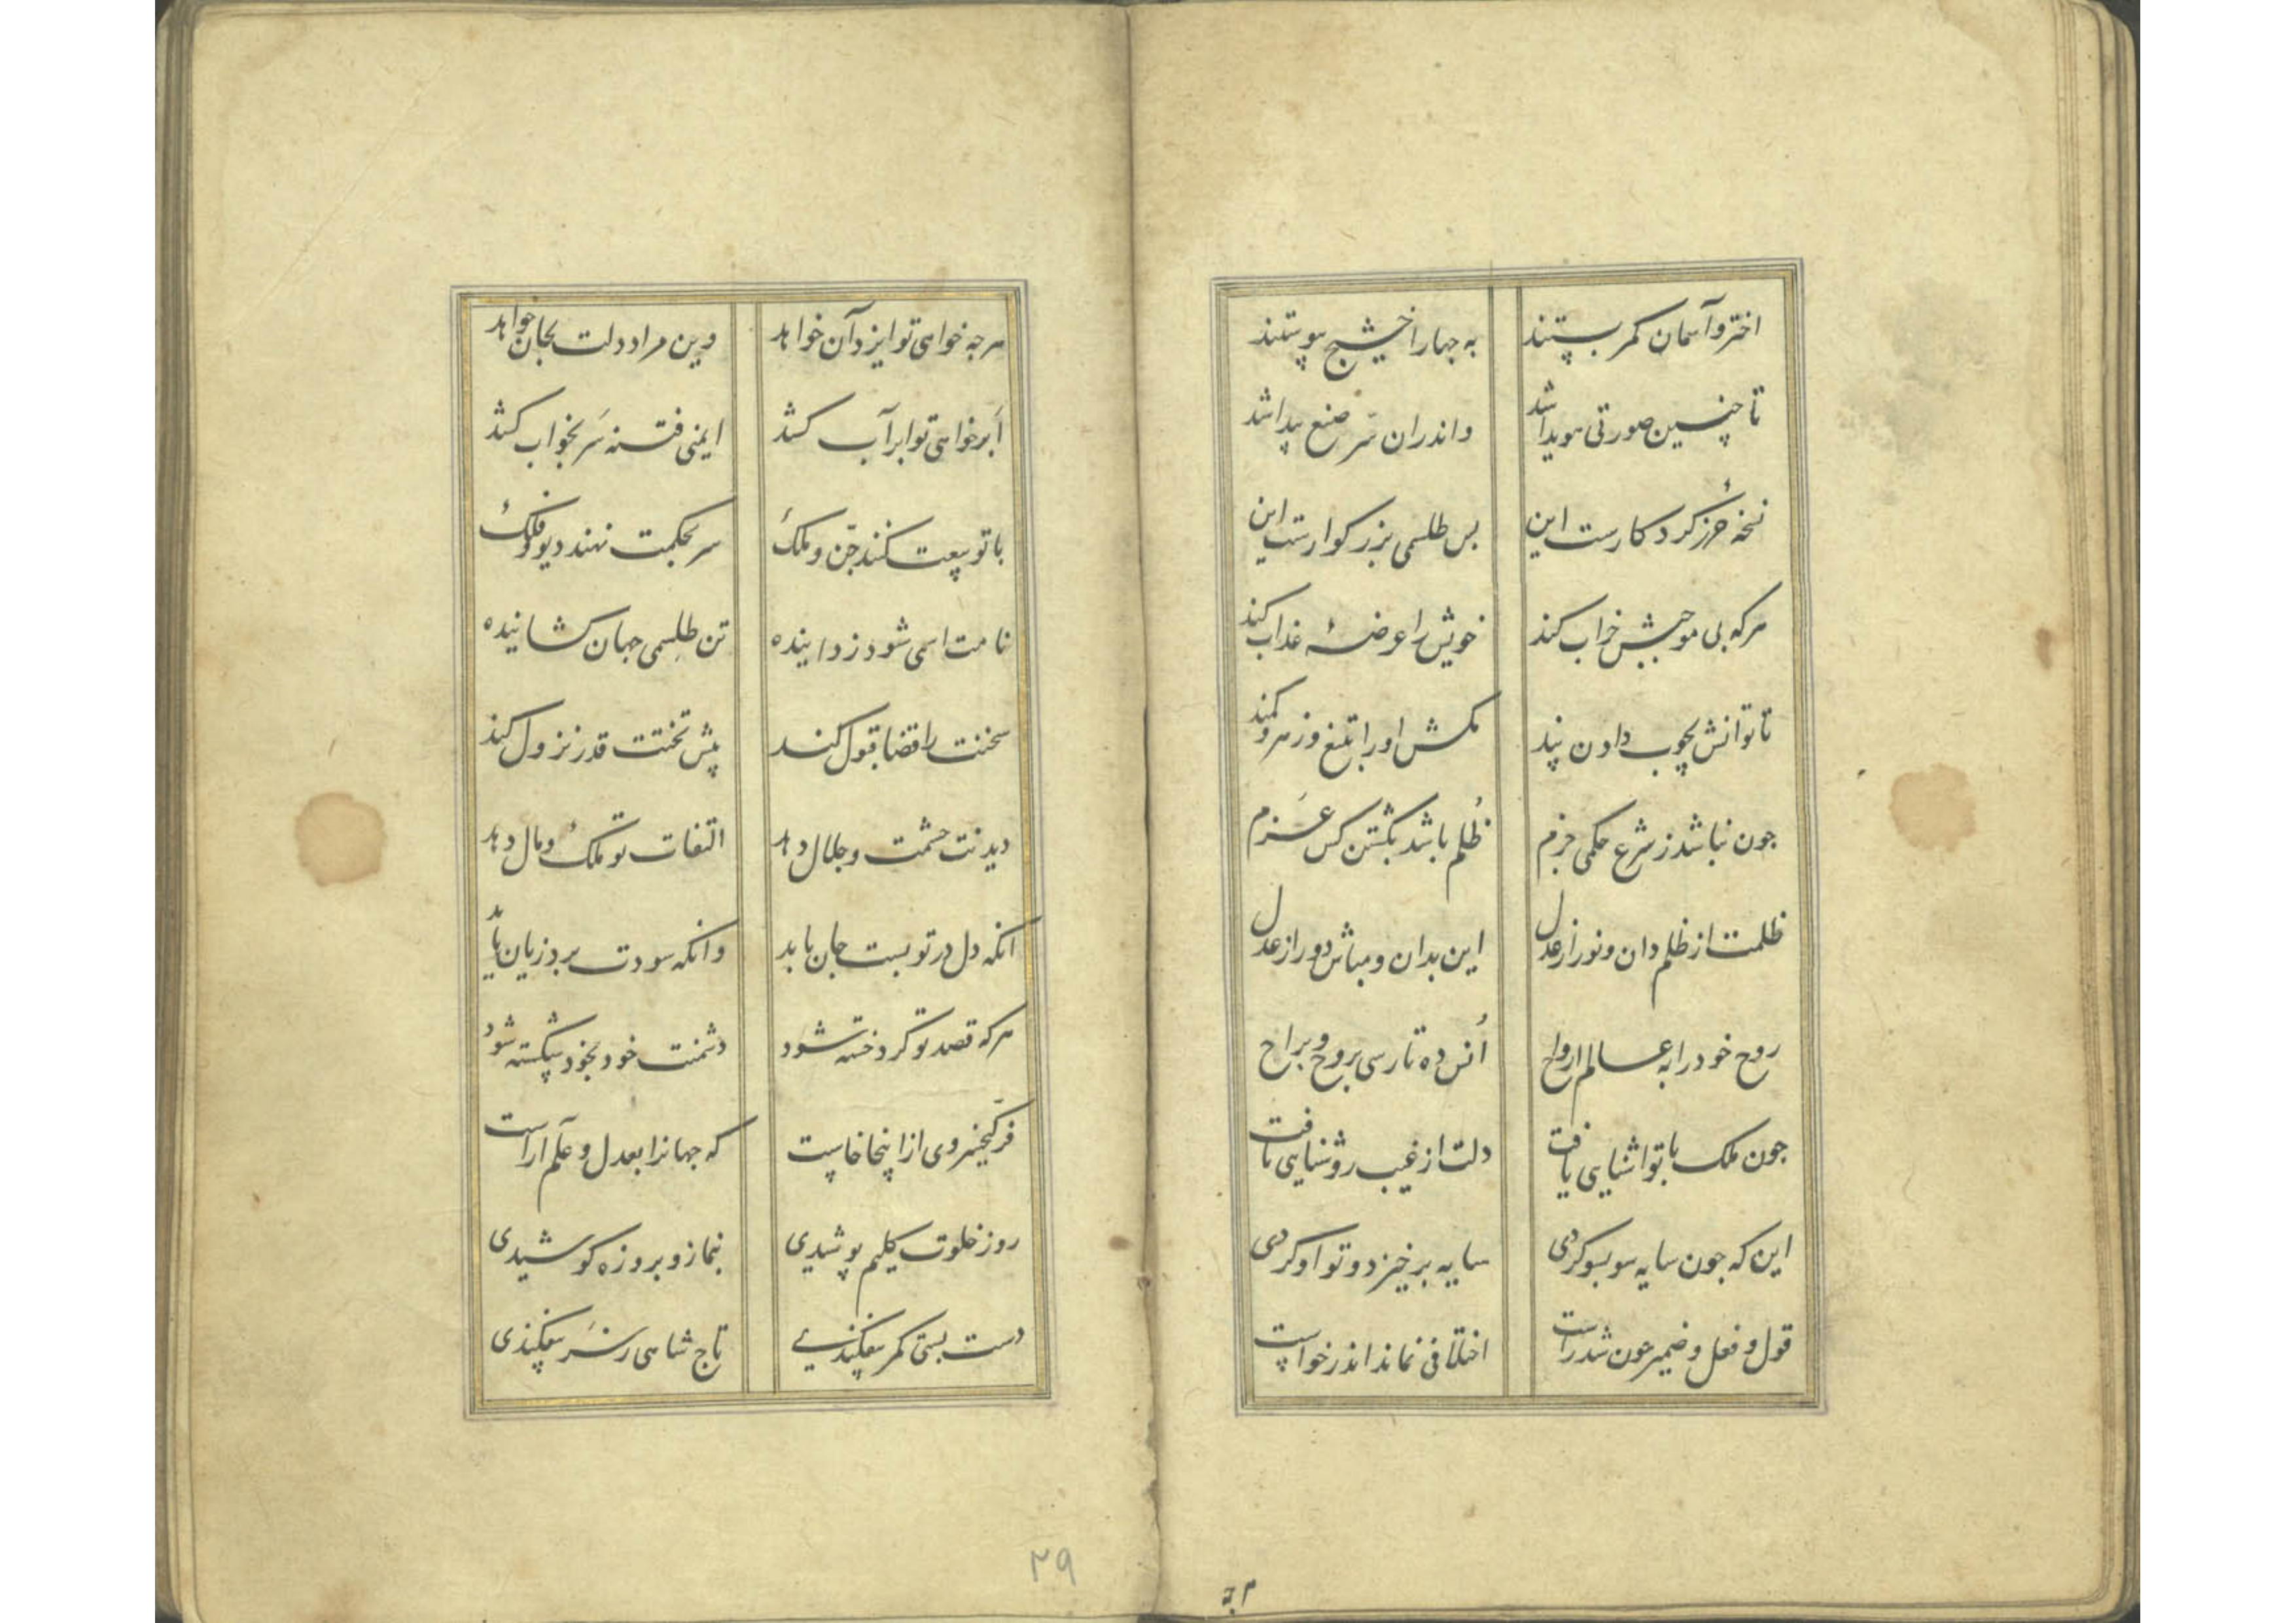 اختر و آسمان کمر بستند به چهار اخشیج پیوستند
تا چنین صورتی هویدا شد واندران سر صنع پیدا شد
نسخهٔ حرز کردکارست این بس طلسمی بزرکوارست این
هرکه بی موجبش خراب کند خویش را عرضهٔ عذاب کند
تا توانش بچوب دادن پند مکش او را بتیغ و زهر و کمند
جون نباشد ز شرع حکمی جزم ظلم باشد بکشتن کس عزم
ظلمت از ظلم دان و نور از عدل این بدان و مباش دور از عدل
روح خود را به عالم ارواح اُنس ده تا رسی بروح و براح
جون ملک با تو اشنایی یافت دلت از غیب روشنایی یافت
این که جون سایه سو بسو کردی سایه برخیزد و تو او کردی
قول و فعل و ضمیر جون شد راست اختلافی نماند اندر خواست
م‍ ج‍ه
هرجه خواهی تو ایزد آن خواهد وین مراد دلت بجان خواهد
اَبر خواهی تو ابر آب کشد ایمنی فتنه سَر بخواب کشد
با تو بیعت کنند جنّ و ملک سر بحکمت نهند دیو و فلک
نامت اسمی شود زداینده تن طلسمی جهان کشاینده
سخنت را قضا قبول کند پیش تختت قدر نزول کند
دیدنت حشمت و جلال دهد التفات تو ملک و مال دهد
انکه دل در تو بست جان یابد وانکه سودت برد زیان یابد
هرکه قصد تو کرد خسته شود دشمنت خود بخود شکسته شود
فر کیخسروی از اینجا خاست که جهانرا بعدل و علم آراست
روز خلوت کلیم پوشیدی بنماز و بروزه کوشیدی
دست بستی کمر بیفکندی تاج شاهی ز سَر بیفکندی
۲۹